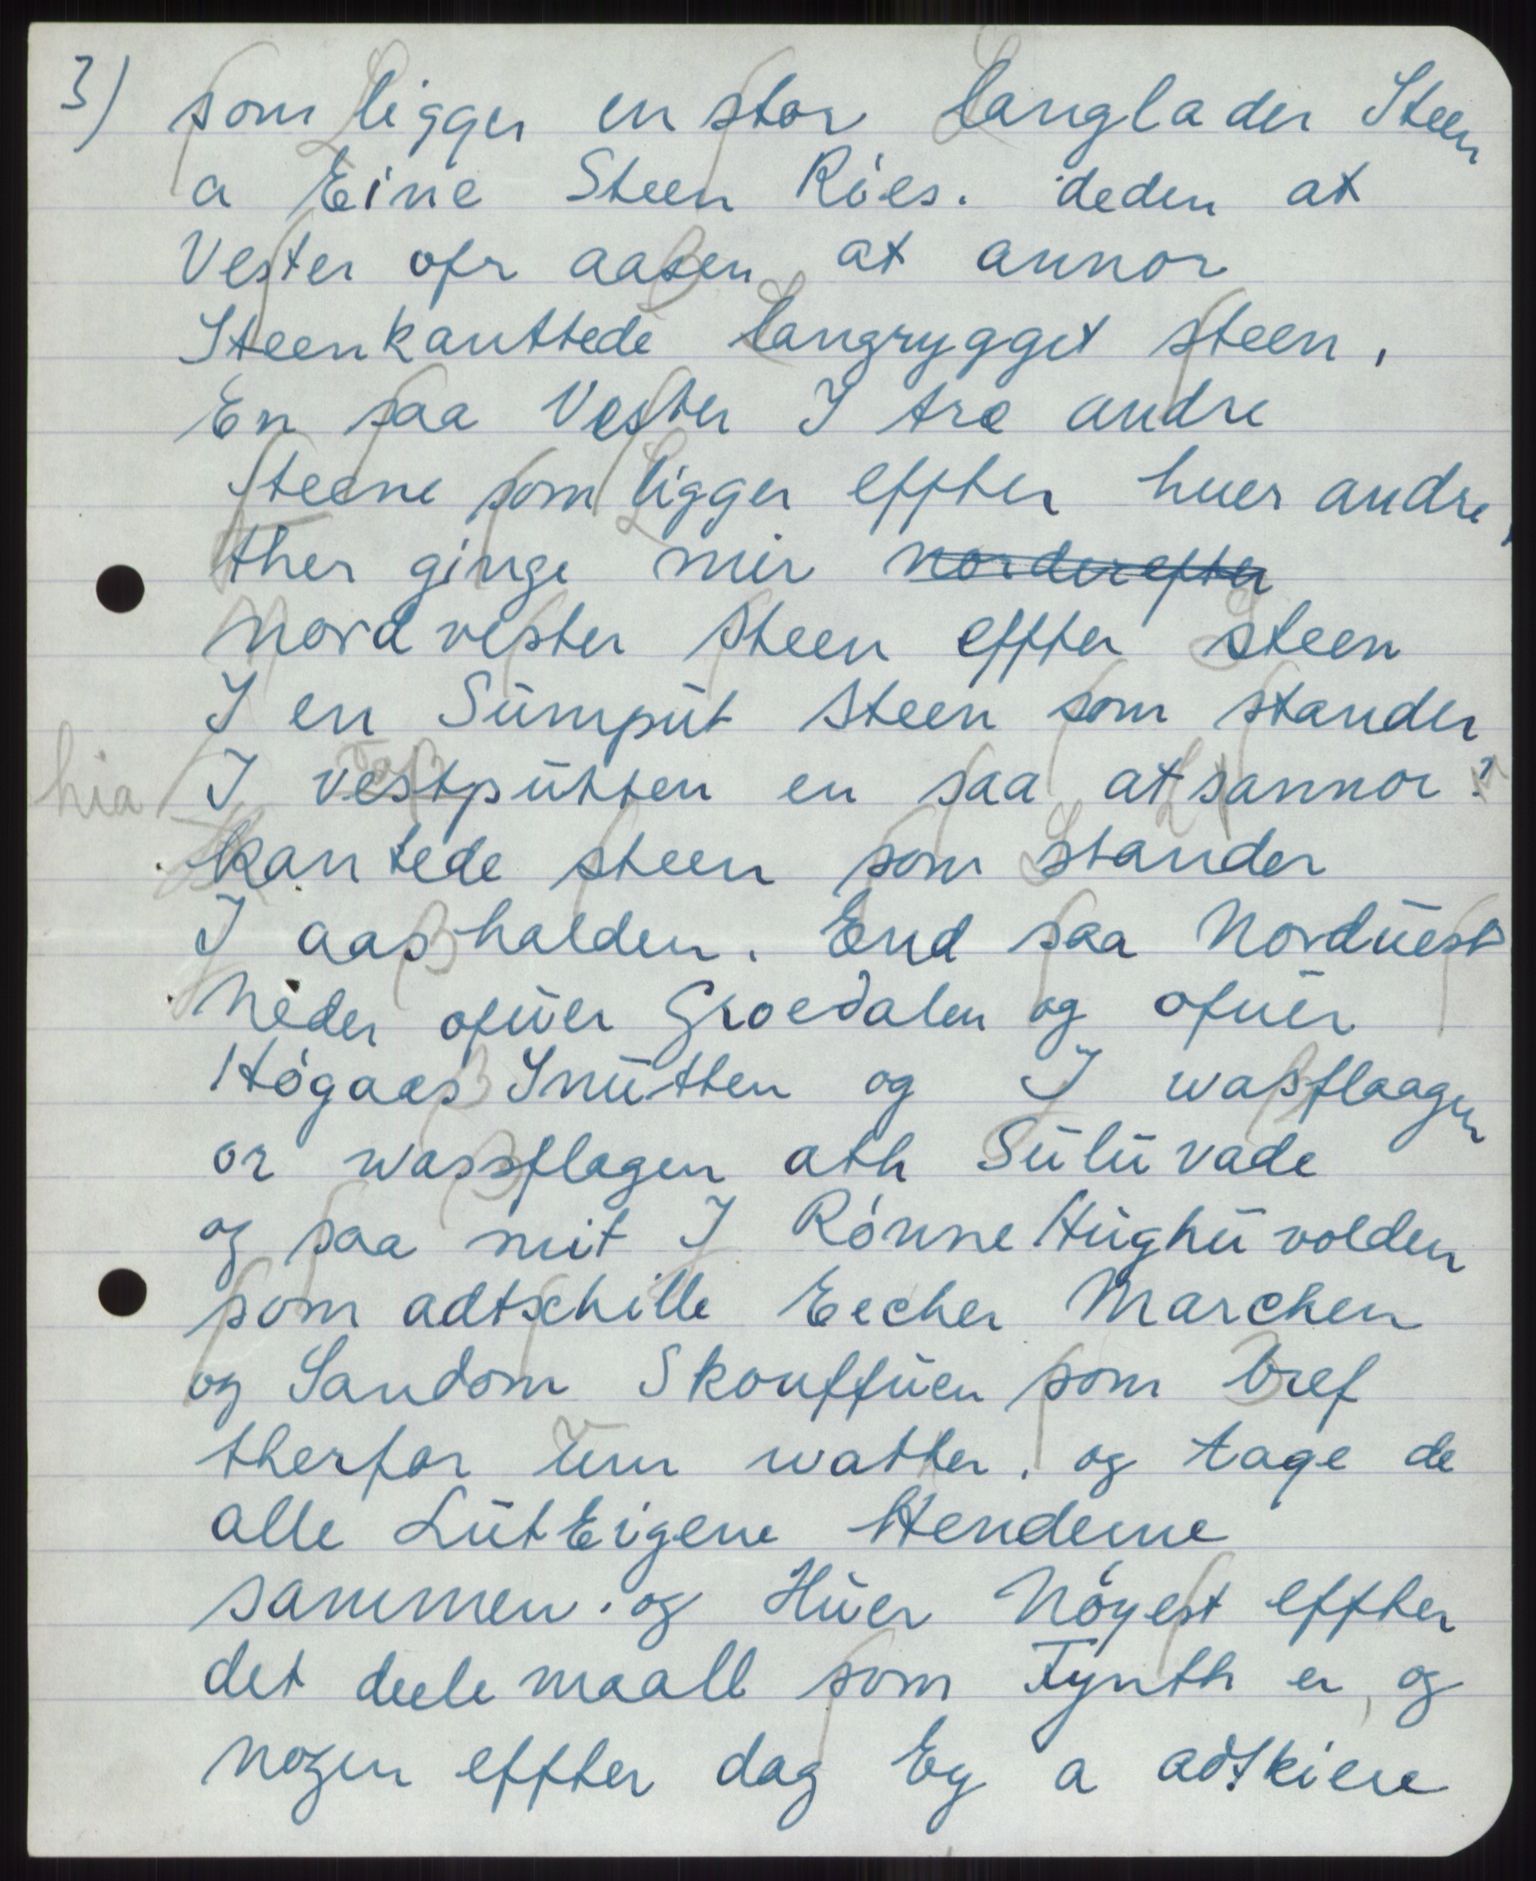 3) som ligger en stor langlader Steen
a Eine Steen Róes. deden at
Vester ofr aasen at annor
Steenkanttede langrygget steen,
En saa Vester I tre andre
Steene som ligger effter huer andre,
ther ginge mir norderefter
Nordvester steen effter steen
I en Sümpüt Steen som stander
hia I vestpütten en saa at sannor?
kantede steen som stander
I aashalden. End saa Nordüest
Neder ofüer Groedalen og ofuer
Högaas Snütten og I wasflaagen
or wassflagen ath Sülüvade
og saa mit I Rónne Hüghü volden
som adtschille Eecher Marchen
og Sandom Skouffüen som bref
therfor üm watter. og tage de
alle LütEigene Henderne
sammen. og Hüer Nöyest effter
det deele maall som Fynth er, og
nogen effter dag Eg a adskiere